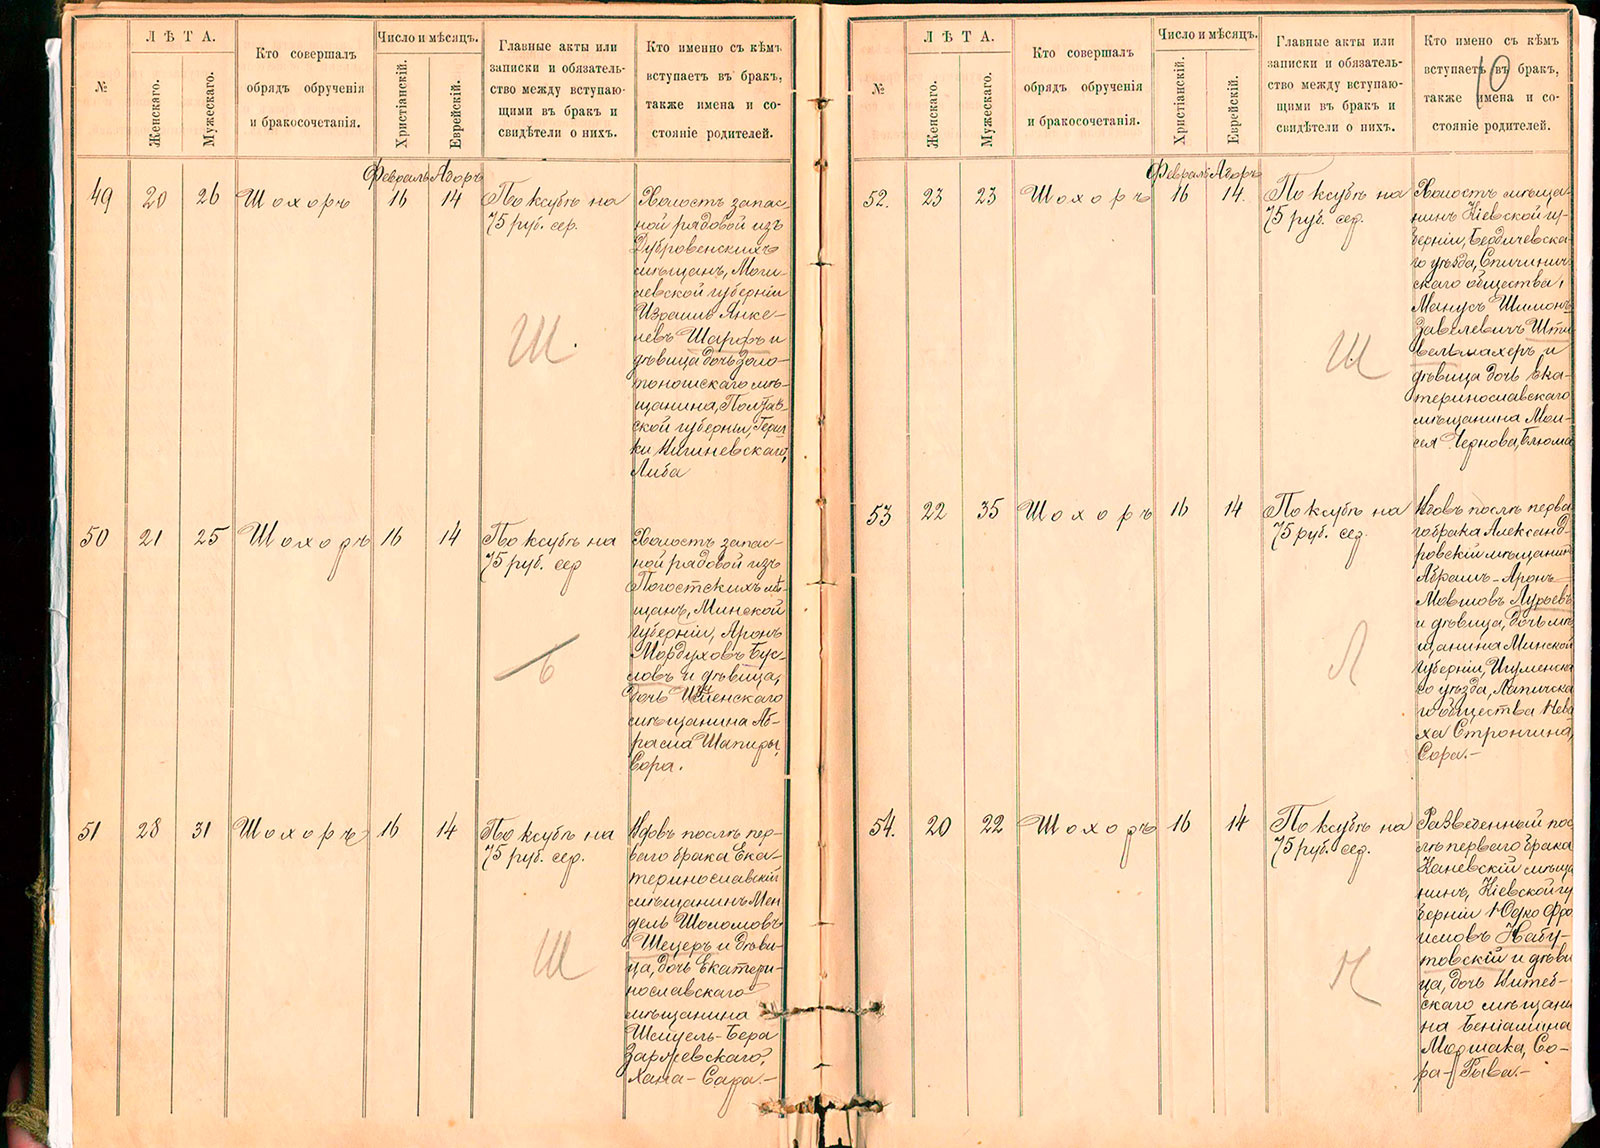 №
ЛѢТА.
Женскаго.
Мужескаго.
Кто совершалъ
обрядъ обрученія
и бракосочетанія.
Число и мѣсяцъ.
Христіанскій.
Еврейскій.
Главные акты или
записки и обязатель-
ство между вступаю-
щими въ бракъ и
свидѣтели о нихъ.
Кто именно съ кѣмъ
вступаетъ въ бракъ,
также имена и со-
стояніе родителей.
Февраль Адоръ
49 20 26 Шохоръ 16 14
По ксубѣ на
75 руб. сер.
Ш.
Холостъ запас-
ной рядовой изъ
Дубровенскихъ
мѣщанъ, Моги-
левской губерніи
Израиль Янке-
левъ Шарфъ и
дѣвица дочь Золо-
тоношскаго мѣ-
щанина, Полтав-
ской губерніи,
Либа
50 21 25 Шохоръ 16 14
По ксубѣ на
75 руб. сер
Б
Холостъ запас-
ной рядовой изъ
Погостскихъ мѣ-
щанъ, Минской
губерніи, Аронъ
Мордуховъ Бус-
ловъ и дѣвица,
дочь
мѣщанина Аб-
рама Шапиры,
Сора.
51 28 31 Шохоръ 16 14
По ксубѣ на
75 руб. сер.
Ш
Вдовъ послѣ пер-
ваго брака Ека-
теринославскій
мѣщанинъ Мен
дель Шоломовъ
Шецеръ и дѣви-
ца, дочь Екатери-
нославскаго
мѣщанина
Шмуель-Бера
Заржевскаго,
Хана-Сара.-
№
ЛѢТА.
Женскаго.
Мужескаго.
Кто совершалъ
обрядъ обрученія
и бракосочетанія.
Число и мѣсяцъ.
Христіанскій.
Еврейскій.
Главные акты или
записки и обязатель-
ство между вступаю-
щими въ бракъ и
свидѣтели о нихъ.
Кто имено съ кѣмъ
вступаетъ въ бракъ,
также имена и со-
стояніе родителей.
10
Февраль Адоръ
52. 23 23 Шохоръ 16 14.
По ксубѣ на
75 руб. сер.
Ш
Холостъ мѣща-
нинъ Кіевской гу-
берніи, Бердичевска-
го уѣзда, Спичинец-
скаго общества,
Манусъ Шимонъ
Завелевичъ Шти
вельмахеръ и
дѣвица дочь Ека-
теринославскаго
мѣщанина Мои-
сея Чернова, Блюма
53 22 35 Шохоръ 16 14
По ксубѣ на
75 руб. сер.
Л
Вдовъ послѣ перва
го брака Александ-
ровскій мѣщанинъ
Абрамъ-Аронъ
Мовшовъ Лурьевъ
и дѣвица, дочь мѣ
щанина Минской
губерніи, Игуменска
го уѣзда, Лапичска
го общества Нева
ха Стронгина,
Сора.-
54. 20 22 Шохоръ 16 14
По ксубѣ на
75 руб. сер.
Н
Разведенный пос
лѣ перваго брака
Каневскій мѣща
нинъ, Кіевской гу
берніи Юдко Фро
имовъ Набу-
товскій и дѣви
ца, дочь Витеб-
скаго мѣщани
на Беніамина
Моршака, Со-
ра-Рыва.-